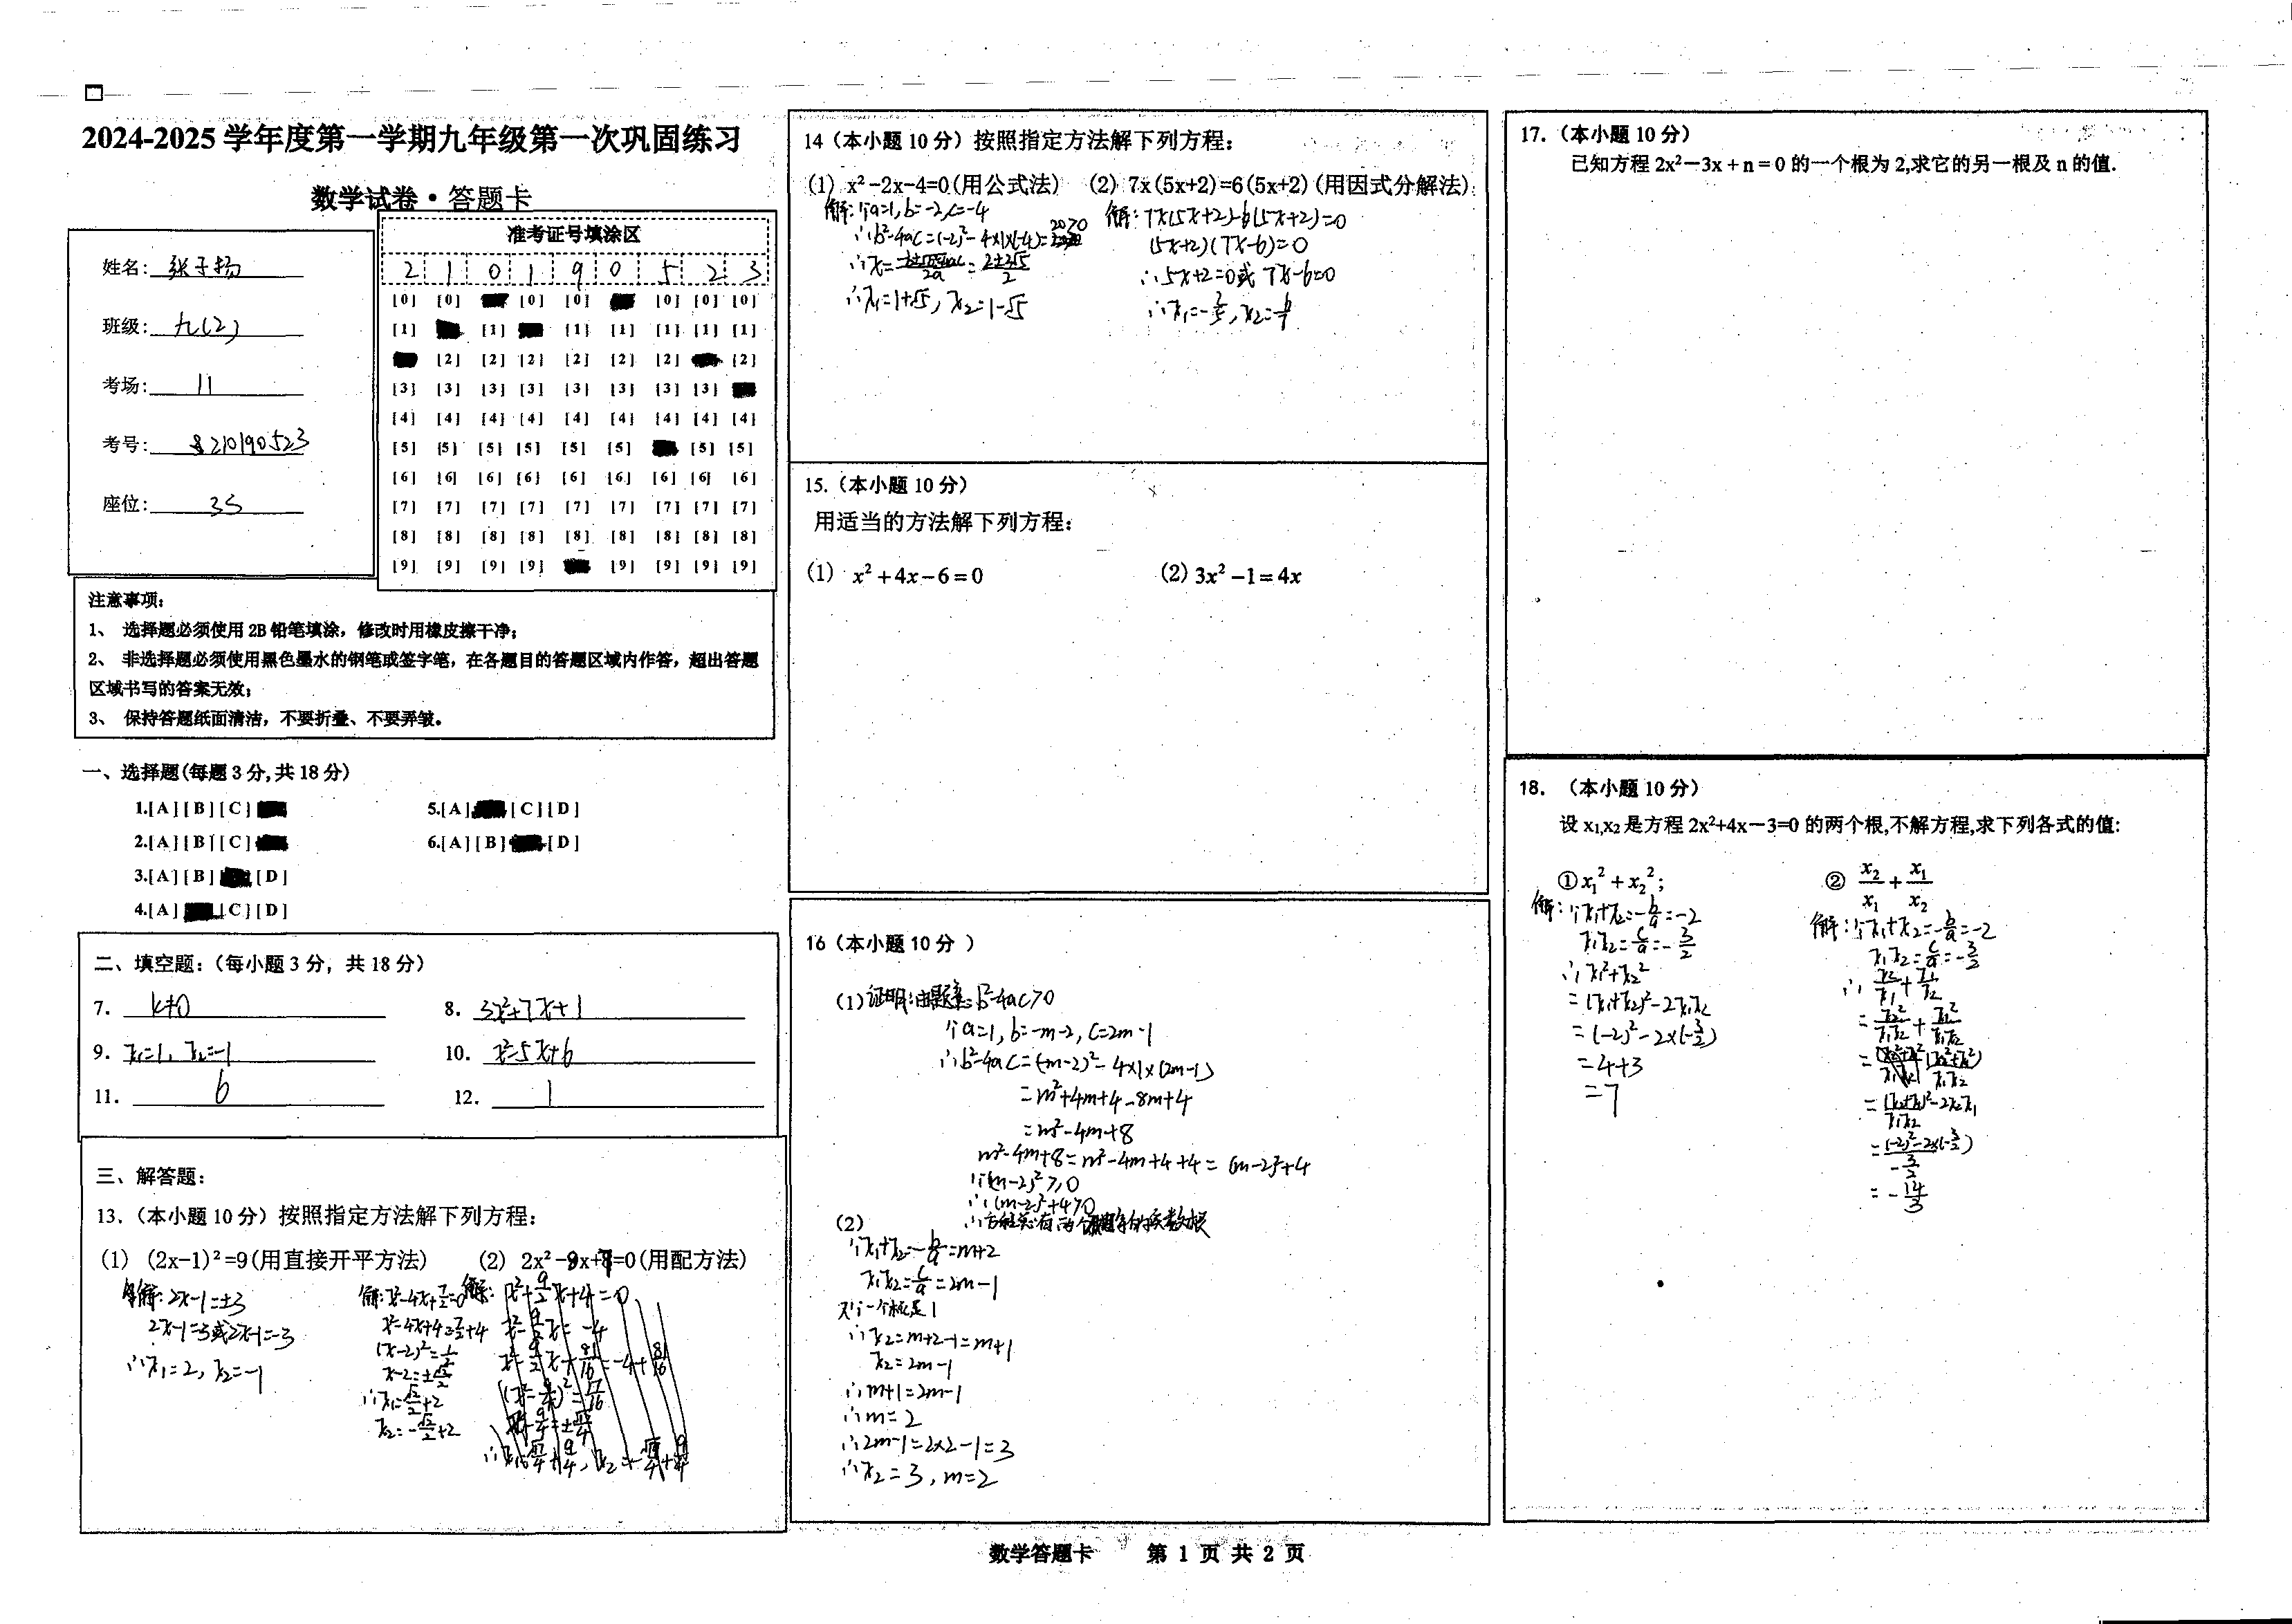 2024-2025 学年度第一学期九年级第一次巩固练习
数学试卷·答题卡
姓名: 张子扬
班级: 九(2)
考场: 11
考号: 8210190523
座位: 35
准考证号填涂区
2 1 0 1 9 0 5 2 3
[0] [0] [0] [0] [0] [0] [0]
[1] [1] [1] [1] [1] [1] [1]
[2] [2] [2] [2] [2] [2] [2]
[3] [3] [3] [3] [3] [3] [3] [3]
[4] [4] [4] [4] [4] [4] [4] [4] [4]
[5] [5] [5] [5] [5] [5] [5] [5]
[6] [6] [6] [6] [6] [6] [6] [6] [6]
[7] [7] [7] [7] [7] [7] [7] [7] [7]
[8] [8] [8] [8] [8] [8] [8] [8] [8]
[9] [9] [9] [9] [9] [9] [9] [9]
注意事项:
1、 选择题必须使用 2B 铅笔填涂,修改时用橡皮擦干净;
2、 非选择题必须使用黑色墨水的钢笔或签字笔,在各题目的答题区域内作答,超出答题
区域书写的答案无效;
3、 保持答题纸面清洁,不要折叠、不要弄皱。
一、选择题(每题 3 分,共 18 分)
1.[A][B][C]
2.[A][B][C]
3.[A][B] [D]
4.[A] [C][D]
5.[A] [C][D]
6.[A][B] [D]
二、填空题:(每小题 3 分,共 18 分)
7. k≠0
8. 3x²+7x+1
9. x₁=1, x₂=-1
10. x²-5x+6
11. 6
12. 1
三、解答题:
13.(本小题 10 分)按照指定方法解下列方程:
(1) (2x-1)²=9(用直接开平方法)
解:2x-1=±3
2x-1=3或2x-1=-3
∴x₁=2, x₂=-1
(2) 2x²-8x+7=0(用配方法)
解:x²-4x+7/2=0
x²-4x+4=-7/2+4
(x-2)²=1/2
x-2=±√2/2
∴x₁=√2/2+2
x₂=-√2/2+2
14(本小题 10 分)按照指定方法解下列方程:
(1) x²-2x-4=0(用公式法)
解:∵a=1, b=-2, c=-4
∴b²-4ac=(-2)²-4×1×(-4)=20>0
∴x=(-b±√b²-4ac)/2a=(2±2√5)/2
∴x₁=1+√5, x₂=1-√5
(2) 7x(5x+2)=6(5x+2)(用因式分解法)
解:7x(5x+2)-6(5x+2)=0
(5x+2)(7x-6)=0
∴5x+2=0或7x-6=0
∴x₁=-2/5, x₂=6/7
15.(本小题 10 分)
用适当的方法解下列方程:
(1) x²+4x-6=0
(2) 3x²-1=4x
16(本小题 10 分 )
(1)证明:由题意:b²-4ac>0
∵a=1, b=-m-2, c=2m-1
∴b²-4ac=(-m-2)²-4×1×(2m-1)
=m²+4m+4-8m+4
=m²-4m+8
m²-4m+8=m²-4m+4+4=(m-2)²+4
∵(m-2)²≥0
∴(m-2)²+4>0
∴方程总有两个不相等的实数根
(2)
∵x₁+x₂=-b/a=m+2
x₁x₂=c/a=2m-1
又∵一个根是1
∴x₂=m+2-1=m+1
x₂=2m-1
∴m+1=2m-1
∴m=2
∴2m-1=2×2-1=3
∴x₂=3, m=2
17.(本小题 10 分)
已知方程 2x²-3x+n=0 的一个根为 2,求它的另一根及 n 的值.
18. (本小题 10 分)
设 x₁,x₂ 是方程 2x²+4x-3=0 的两个根,不解方程,求下列各式的值:
①x₁²+x₂²;
解:∵x₁+x₂=-b/a=-2
x₁x₂=c/a=-3/2
∴x₁²+x₂²
=(x₁+x₂)²-2x₁x₂
=(-2)²-2×(-3/2)
=4+3
=7
② x₂/x₁+x₁/x₂
解:∵x₁+x₂=-b/a=-2
x₁x₂=c/a=-3/2
∴x₂/x₁+x₁/x₂
=x₂²/x₁x₂+x₁²/x₁x₂
=(x₂²+x₁²)/x₁x₂
=((x₂+x₁)²-2x₂x₁)/x₁x₂
=((-2)²-2×(-3/2))/(-3/2)
=-14/3
数学答题卡 第 1 页 共 2 页